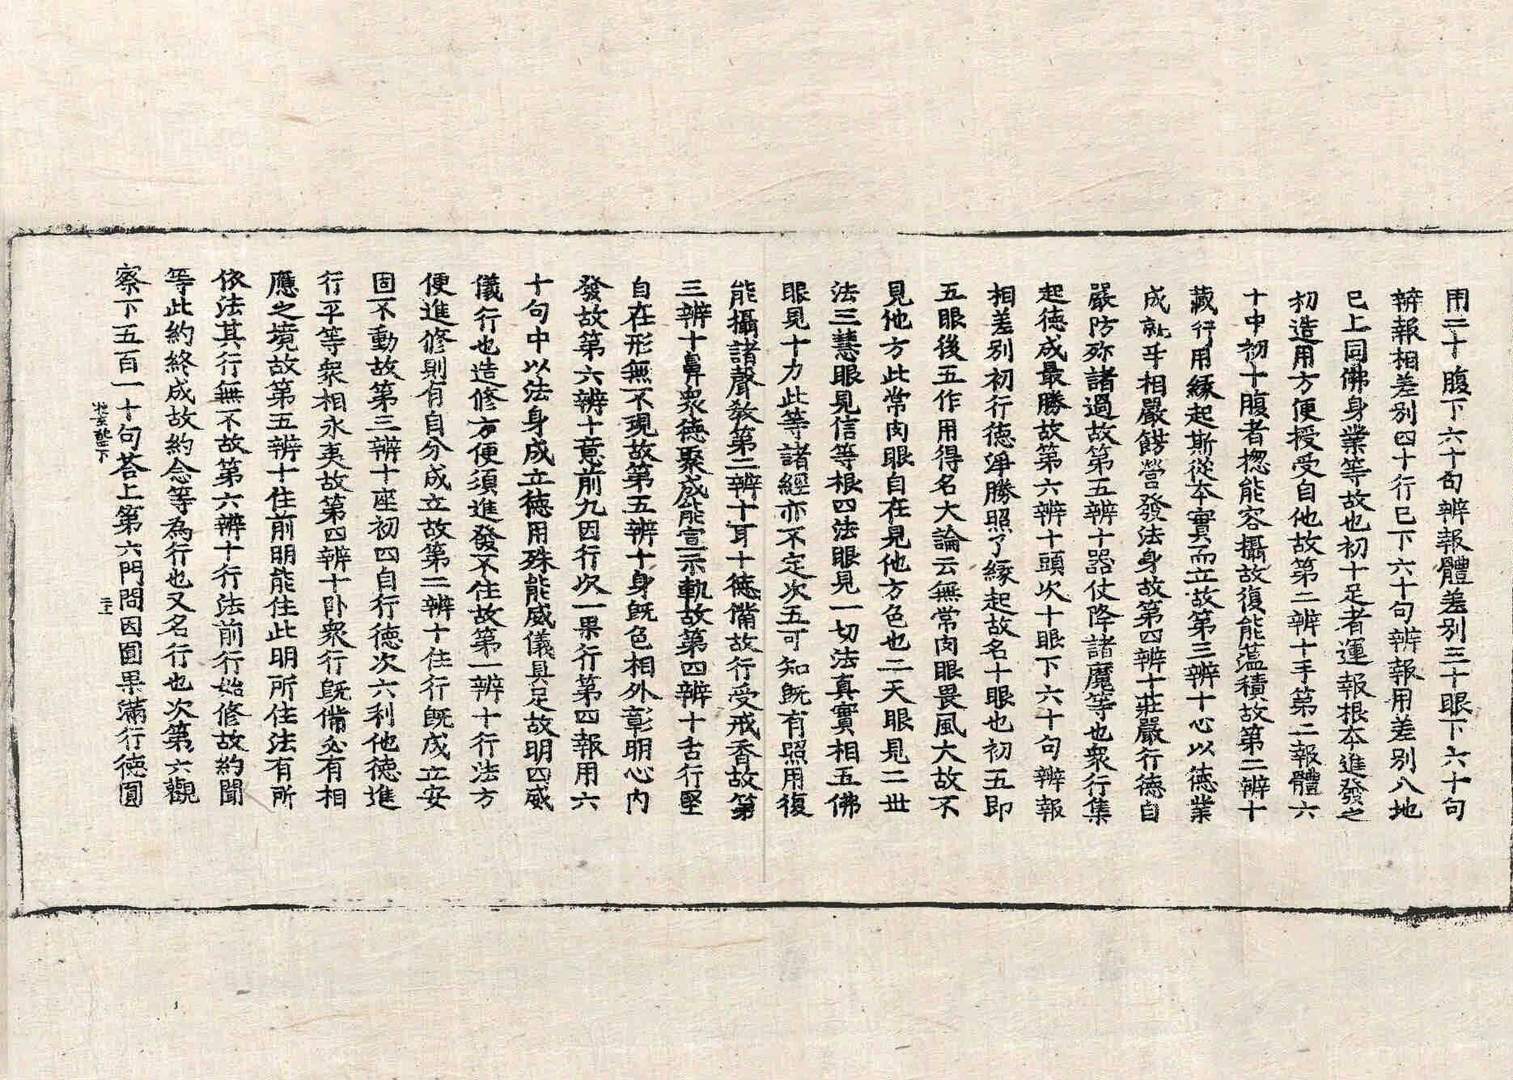 用二十腹下六十句辨報體差別三十眼下六十句
辨報相差別四十行巳下六十句辨報用差別八地
巳上同佛身業等故也初十足者運報根本進發之
初造用方便授受自他故第二辨十手第二報體六
十中初十腹者揔能容攝故復能蕰積故第二辨十
藏行用縁起斯從本實而立故第三辨十心以德業
成就耳相嚴餝營發法身故第四辨十莊嚴行德自
嚴防弥諸過故第五辨十器仗降諸魔等也衆行集
起徳成最勝故第六辨十頭次十眼下六十句辨報
相差別初行德淨勝照了縁起故名十眼也初五即
五眼後五作用得名大論云無常肉眼畏風大故不
見他方此常肉眼自在見他方色也二天眼見二丗
法三慧眼見信等根四法眼見一切法真實相五佛
眼見十力此等諸經亦不定次五可知旣有照用復
能攝諸聲教第二辨十耳十德備故行受戒香故第
三辨十鼻衆徳聚成能宣示軌故第四辨十舌行堅
自在形無不現故第五辨十身旣色相外彰明心內
發故第六辨十意前九因行次一果行第四報用六
十句中以法身成立德用殊能威儀具足故明四威
儀行也造修方便須進發不住故第一辨十行法方
便進修則有自分成立故第二辨十住行旣成立安
固不動故第三辨十座初四自行德次六利他德進
行平等衆相永夷故第四辨十卧衆行旣備必有相
應之境故第五辨十住前明能住此明所住法有所
依法其行無不故第六辨十行法前行始修故約聞
等此約終成故約念等為行也又名行也次第六觀
察下五百一十句荅上第六門問因圎果滿行德圓